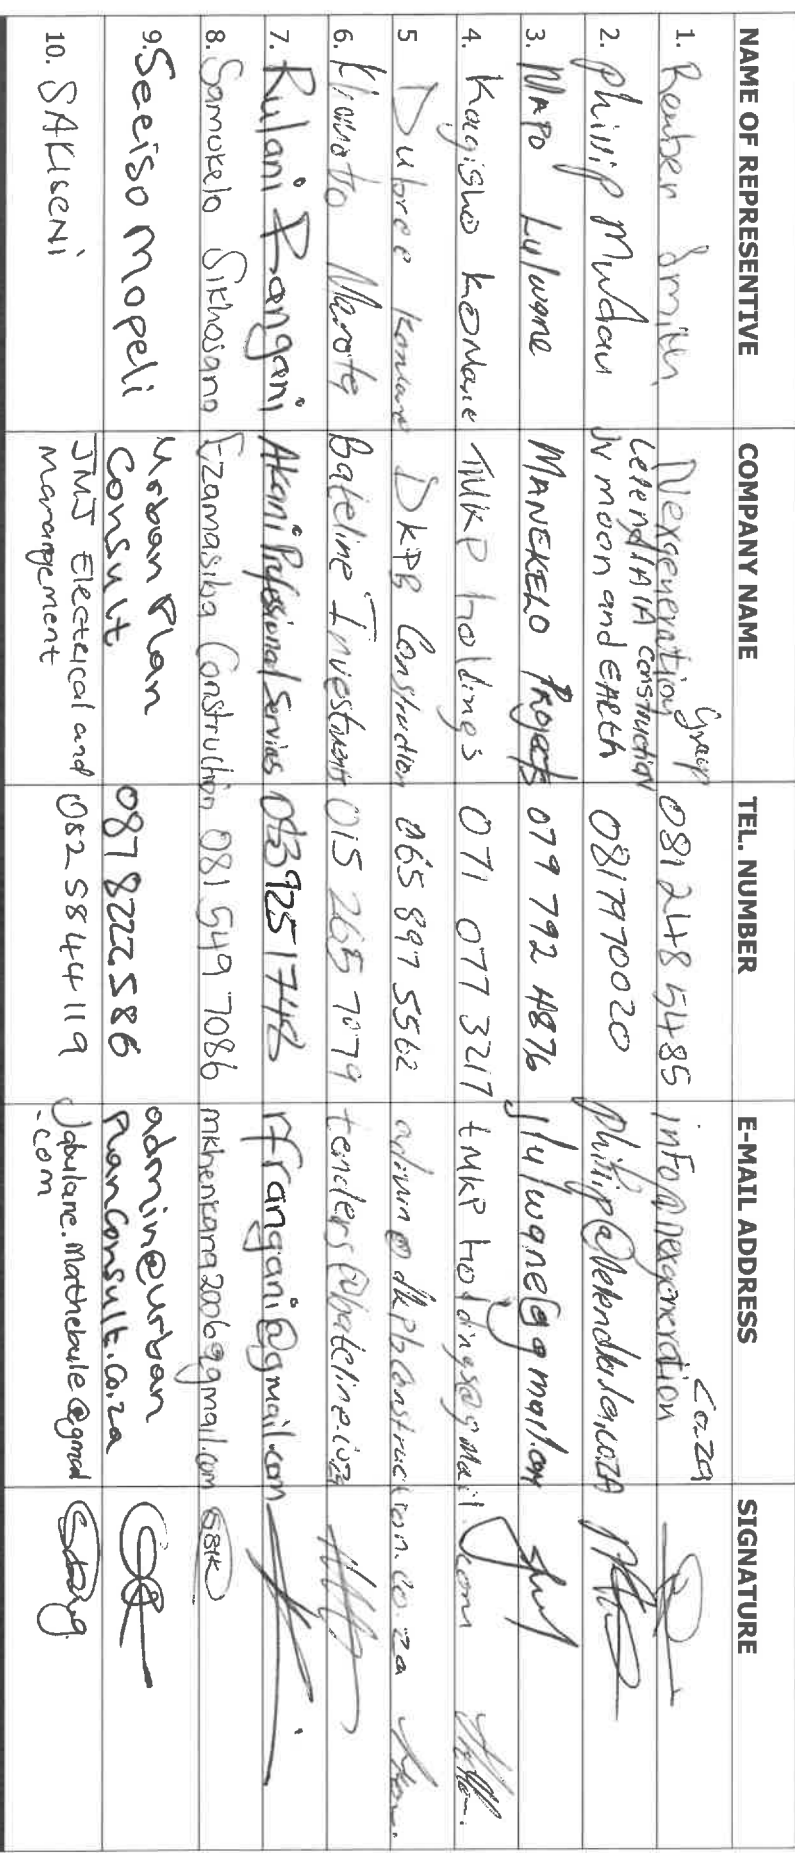 NAME OF REPRESENTIVE COMPANY NAME TEL. NUMBER E-MAIL ADDRESS SIGNATURE
1. Reuben Smith Nexgeneration Group 081 248 5485 info@nexgeneration co.za
2. Phillip Mudau construction JV moon and EARth 0817970020
3. MAPO Lulwane MANEKELO PROjects 079 792 4876 jlulwane@gmail.com
4. Kagisho KoNaie TMKP holdings 071 077 3217 tMKP holdings@gmail.com
5 DKPB Construction 065 897 5562 admin@dkpbconstruction.co.za
6. Bateline Investments 015 265 7079 tenders@bateline.co.za
7. Rulani Rangani Akani Professional Services rfrangani@gmail.com
8. Samukelo Sikhosana Ezamasiba Construction 081 549 7086 mkhenkana2006@gmail.com
9. Seeiso Mopeli Urban Plan Consult 0878222586 admin@urban planconsult.co.za
10. SAKISENI JMJ Electrical and Marangement 082 584 4119 Jabulane.Mathebule@gmail .com